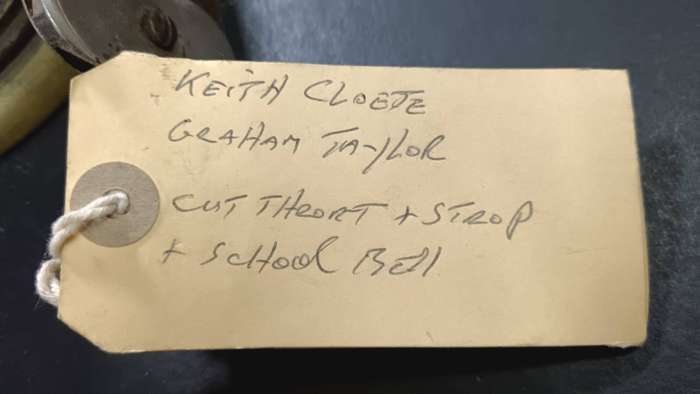 KEITH CLOETE
GRAHAM TAYLOR
CUT THRORT + STROP
+ SCHOOL BELL